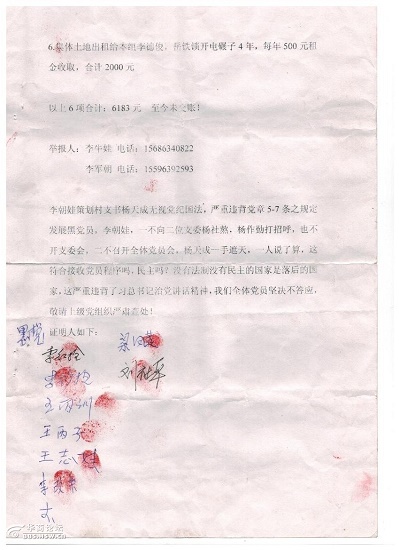 6.集体土地出租给本组李德俊，岳铁锁开电碾子4年，每年500元租
金收取，合计2000元
以上6项合计：6183元  至今未交账！
举报人：李午娃 电话：15686340822
李军朝 电话：15596392593
李朝娃策划村支书杨天成无视党纪国法，严重违背党章5-7条之规定
发展黑党员，李朝娃，一不向二位支委杨社熬、杨作勋打招呼，也不
开支委会，二不召开全体党员会，杨天成一手遮天，一人说了算，这
符合接收党员程序吗，民主吗？没有法制没有民主的国家是落后的国
家，这严重违背了习总书记治党讲话精神，我们全体党员坚决不答应，
敬请上级党组织严肃查处！
证明人如下：
王丙训
王丙
王志
华商论坛
bbs.hsw.cn